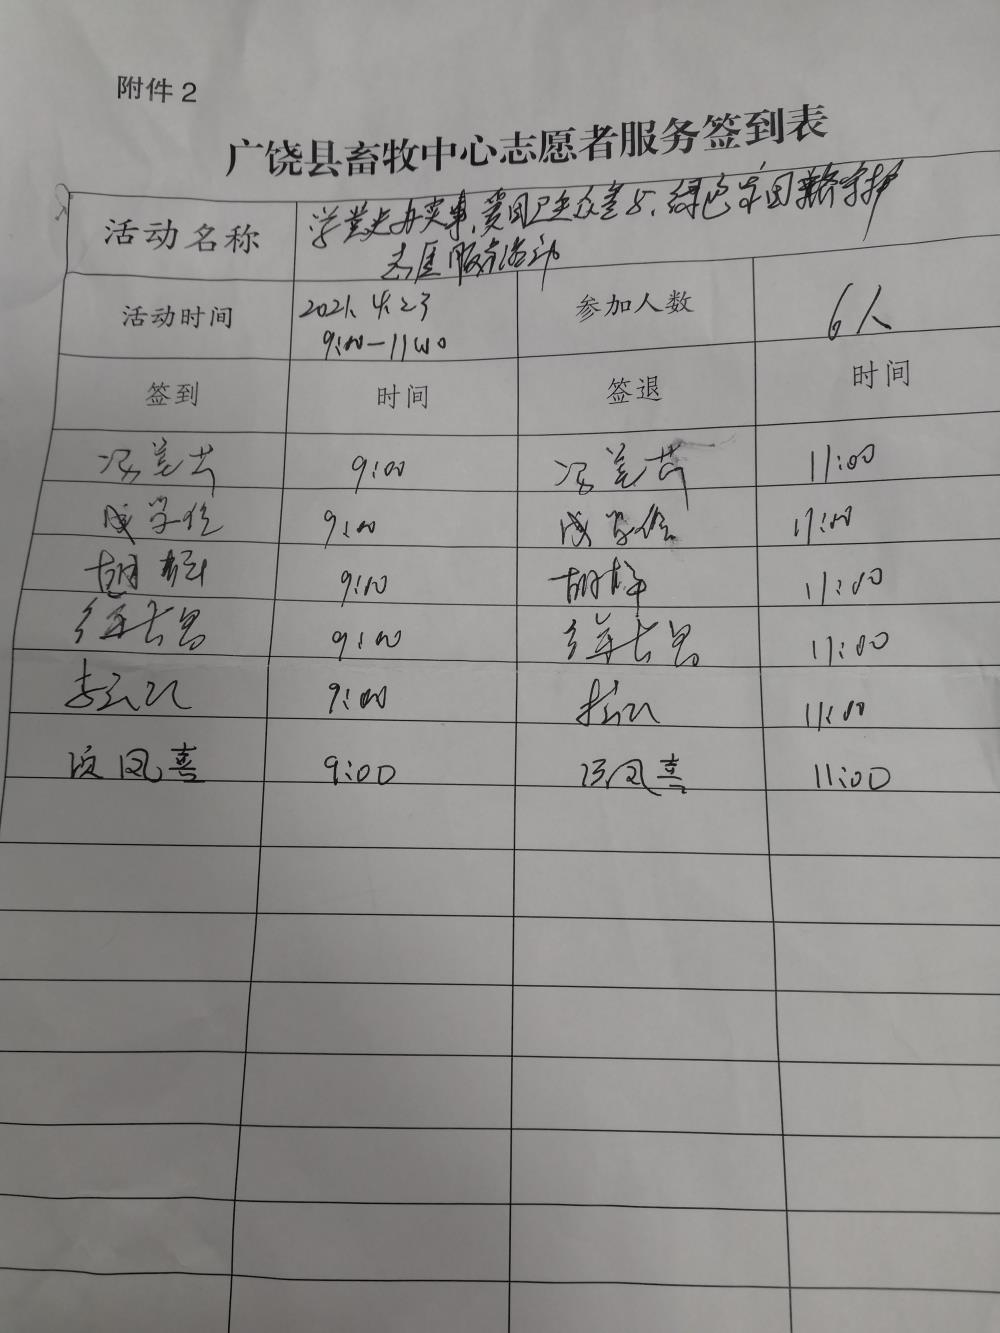 附件2
广饶县畜牧中心志愿者服务签到表
活动名称 学党史办实事,爱国卫生众参与,绿色家园我守护
志愿服务活动
活动时间 2021.4.23 参加人数 6人
9:00-11:00
签到 时间 签退 时间
冯 9:00 冯 11:00
成学俭 9:00 成学俭 11:00
胡 9:00 胡 11:00
徐长 9:00 徐长 11:00
李 9:00 李 11:00
凤喜 9:00 凤喜 11:00